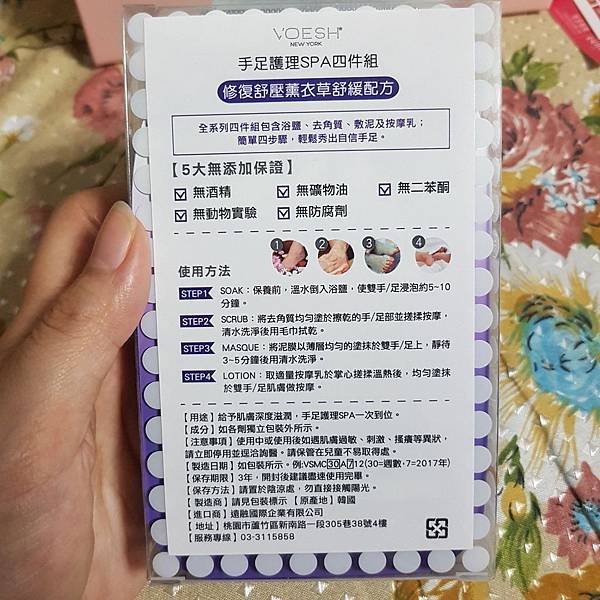 VOESH
NEW YORK
手足護理SPA四件組
修復舒壓薰衣草舒緩配方
全系列四件組包含浴鹽、去角質、敷泥及按摩乳；
簡單四步驟，輕鬆秀出自信手足。
【5大無添加保證】
☑ 無酒精 ☑ 無礦物油 ☑ 無二苯酮
☑ 無動物實驗 ☑ 無防腐劑
1 2 3 4
使用方法
STEP1 SOAK：保養前，溫水倒入浴鹽，使雙手/足浸泡約5~10
分鐘。
STEP2 SCRUB：將去角質均勻塗於擦乾的手/足部並搓揉按摩，
清水洗淨後用毛巾拭乾。
STEP3 MASQUE：將泥膜以薄層均勻的塗抹於雙手/足上，靜待
3~5分鐘後用清水洗淨。
STEP4 LOTION：取適量按摩乳於掌心搓揉溫熱後，均勻塗抹
於雙手/足肌膚做按摩。
【用途】給予肌膚深度滋潤，手足護理SPA一次到位。
【成分】如各劑獨立包裝外所示。
【注意事項】使用中或使用後如遇肌膚過敏、刺激、搔癢等異狀，
請立即停用並逕洽詢醫。請保管在兒童不易取得處。
【製造日期】如包裝所示。例:VSMC30A712(30=週數，7=2017年)
【保存期限】3年，開封後建議盡速使用完畢。
【保存方法】請置於陰涼處，勿直接接觸陽光。
【製造商】請見包裝標示 【原產地】韓國
【進口商】遠融國際企業有限公司
【地址】桃園市蘆竹區新南路一段305巷38號4樓
【服務專線】03-3115858